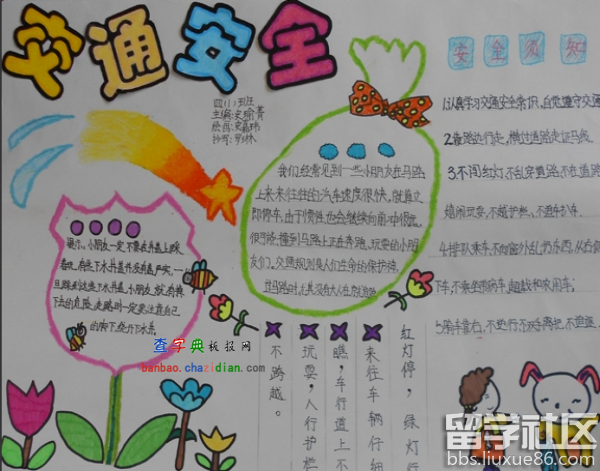 交通安全
四(1)班
主编:
绘图:
抄写:
安全须知
1.认真学习交通安全常识,自觉遵守交通
2.靠路边行走,横过道路走斑马线。
3.不闯红灯,不乱穿道路,不在道路
嬉闹玩耍,不越护栏、不追车扒车。
4.排队乘车,不向窗外乱扔东西,从右侧
下车,不乘坐带病车、超载和农用车。
我们经常见到一些小朋友在马路
上来来往往的汽车速度很快,就算立
即停车,由于惯性也会继续向前冲很远。
很容易撞到马路上正在奔跑、玩耍的小朋
友们。交通规则是人们生命的保护神,
小朋友一定不要在井盖上踩
下去的危险,走路时一定要注意自己
的脚下,绕开下水井。
查字典板报网
banbao.chazidian.com
红灯停,绿灯行
来往车辆仔细
瞧,车行道上不
玩耍,人行护栏
不跨越。
留学社区
bbs.liuxue86.com